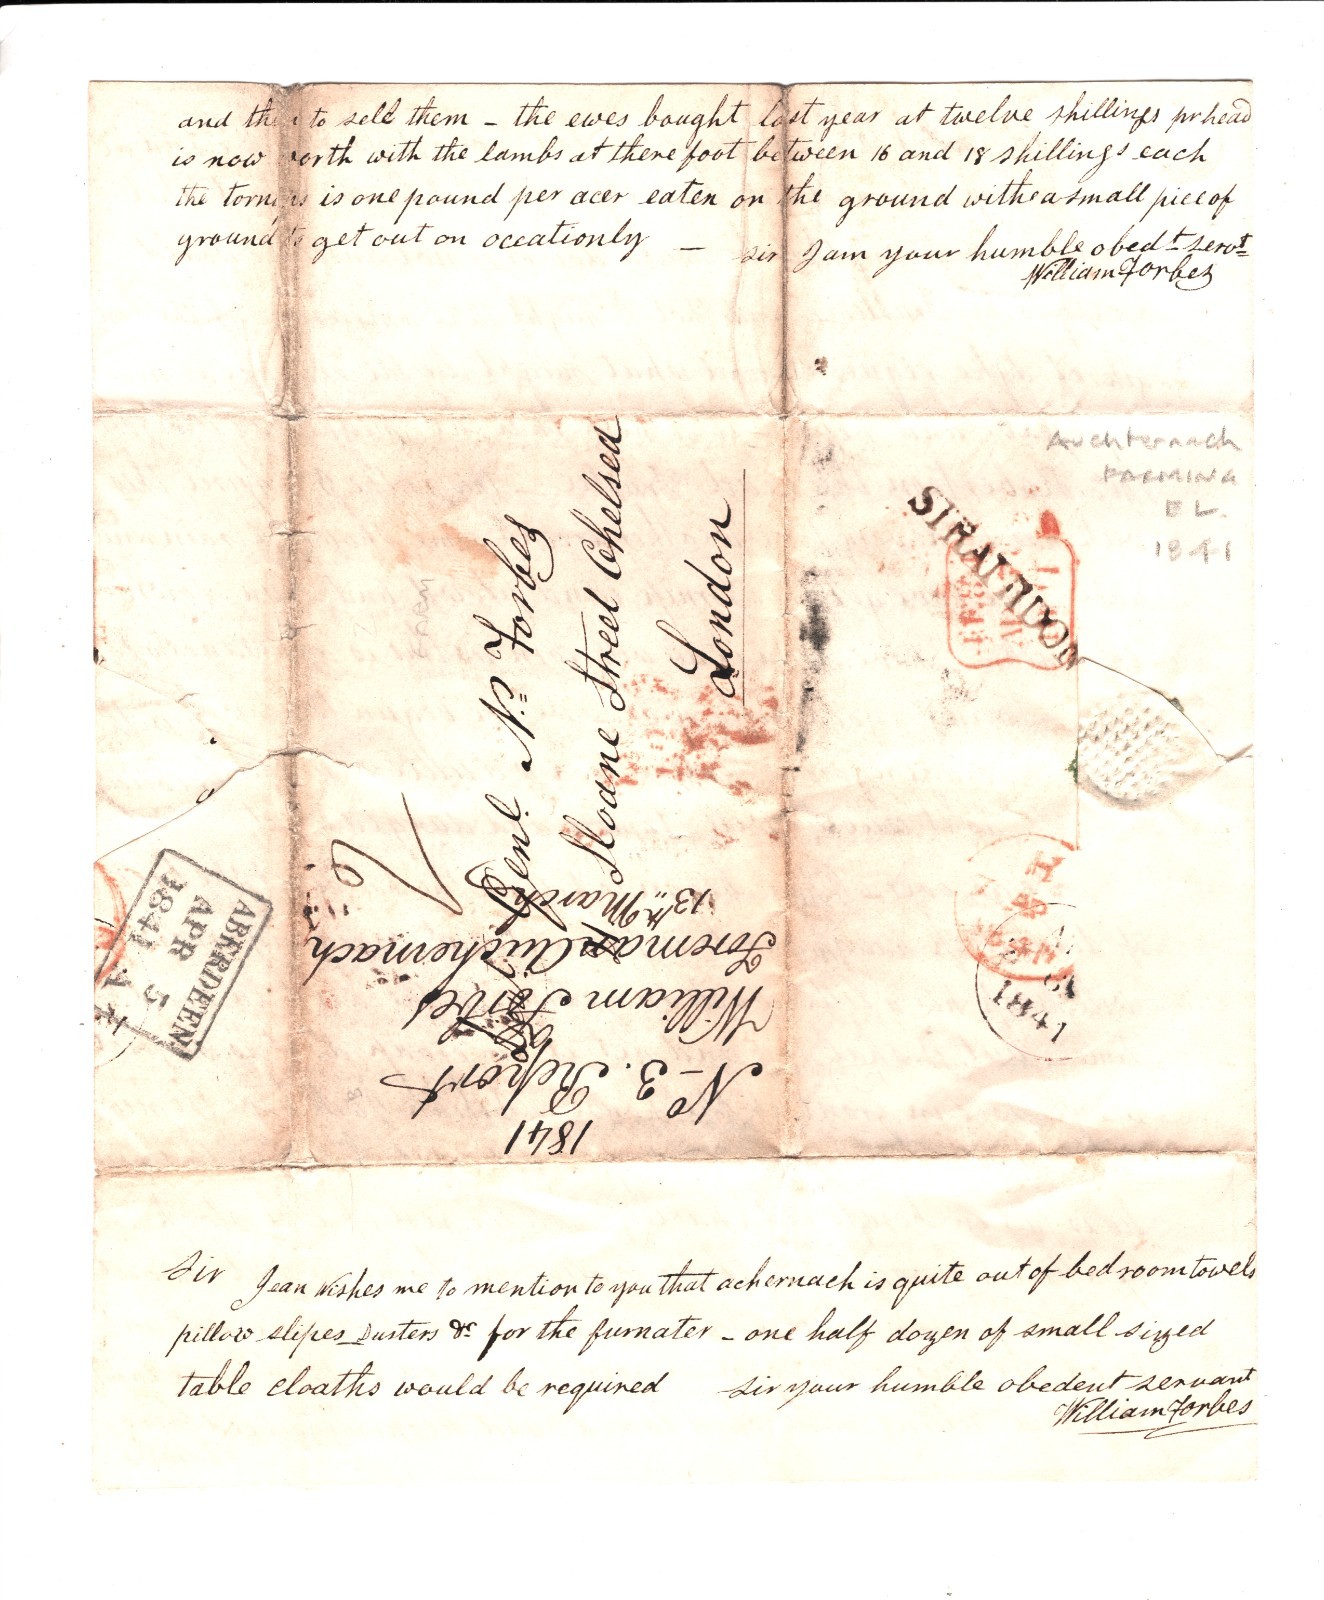 and then to sell them - the ewes bought last year at twelve shillings pr head
is now worth with the lambs at there foot between 16 and 18 shillings each
the tornips is one pound per acer eaten on the ground withe a small piece of
ground to get out on occationly — Sir I am your humble obedt servt
William Forbes
Auchternach
FARMING
1841
STRATHDON
Genl. Ns. Forbes
Sloane Street Chelsea
London
ABERDEEN
APR 5
1841
1841
1841
No. 3. Report
William Forbes
Foreman Auchernach
13th March
Sir Jean wishes me to mention to you that achernach is quite out of bed room towels
pillow slipes Dusters &c for the furnater - one half dozen of small sized
table cloaths would be required Sir your humble obedent servant
William Forbes